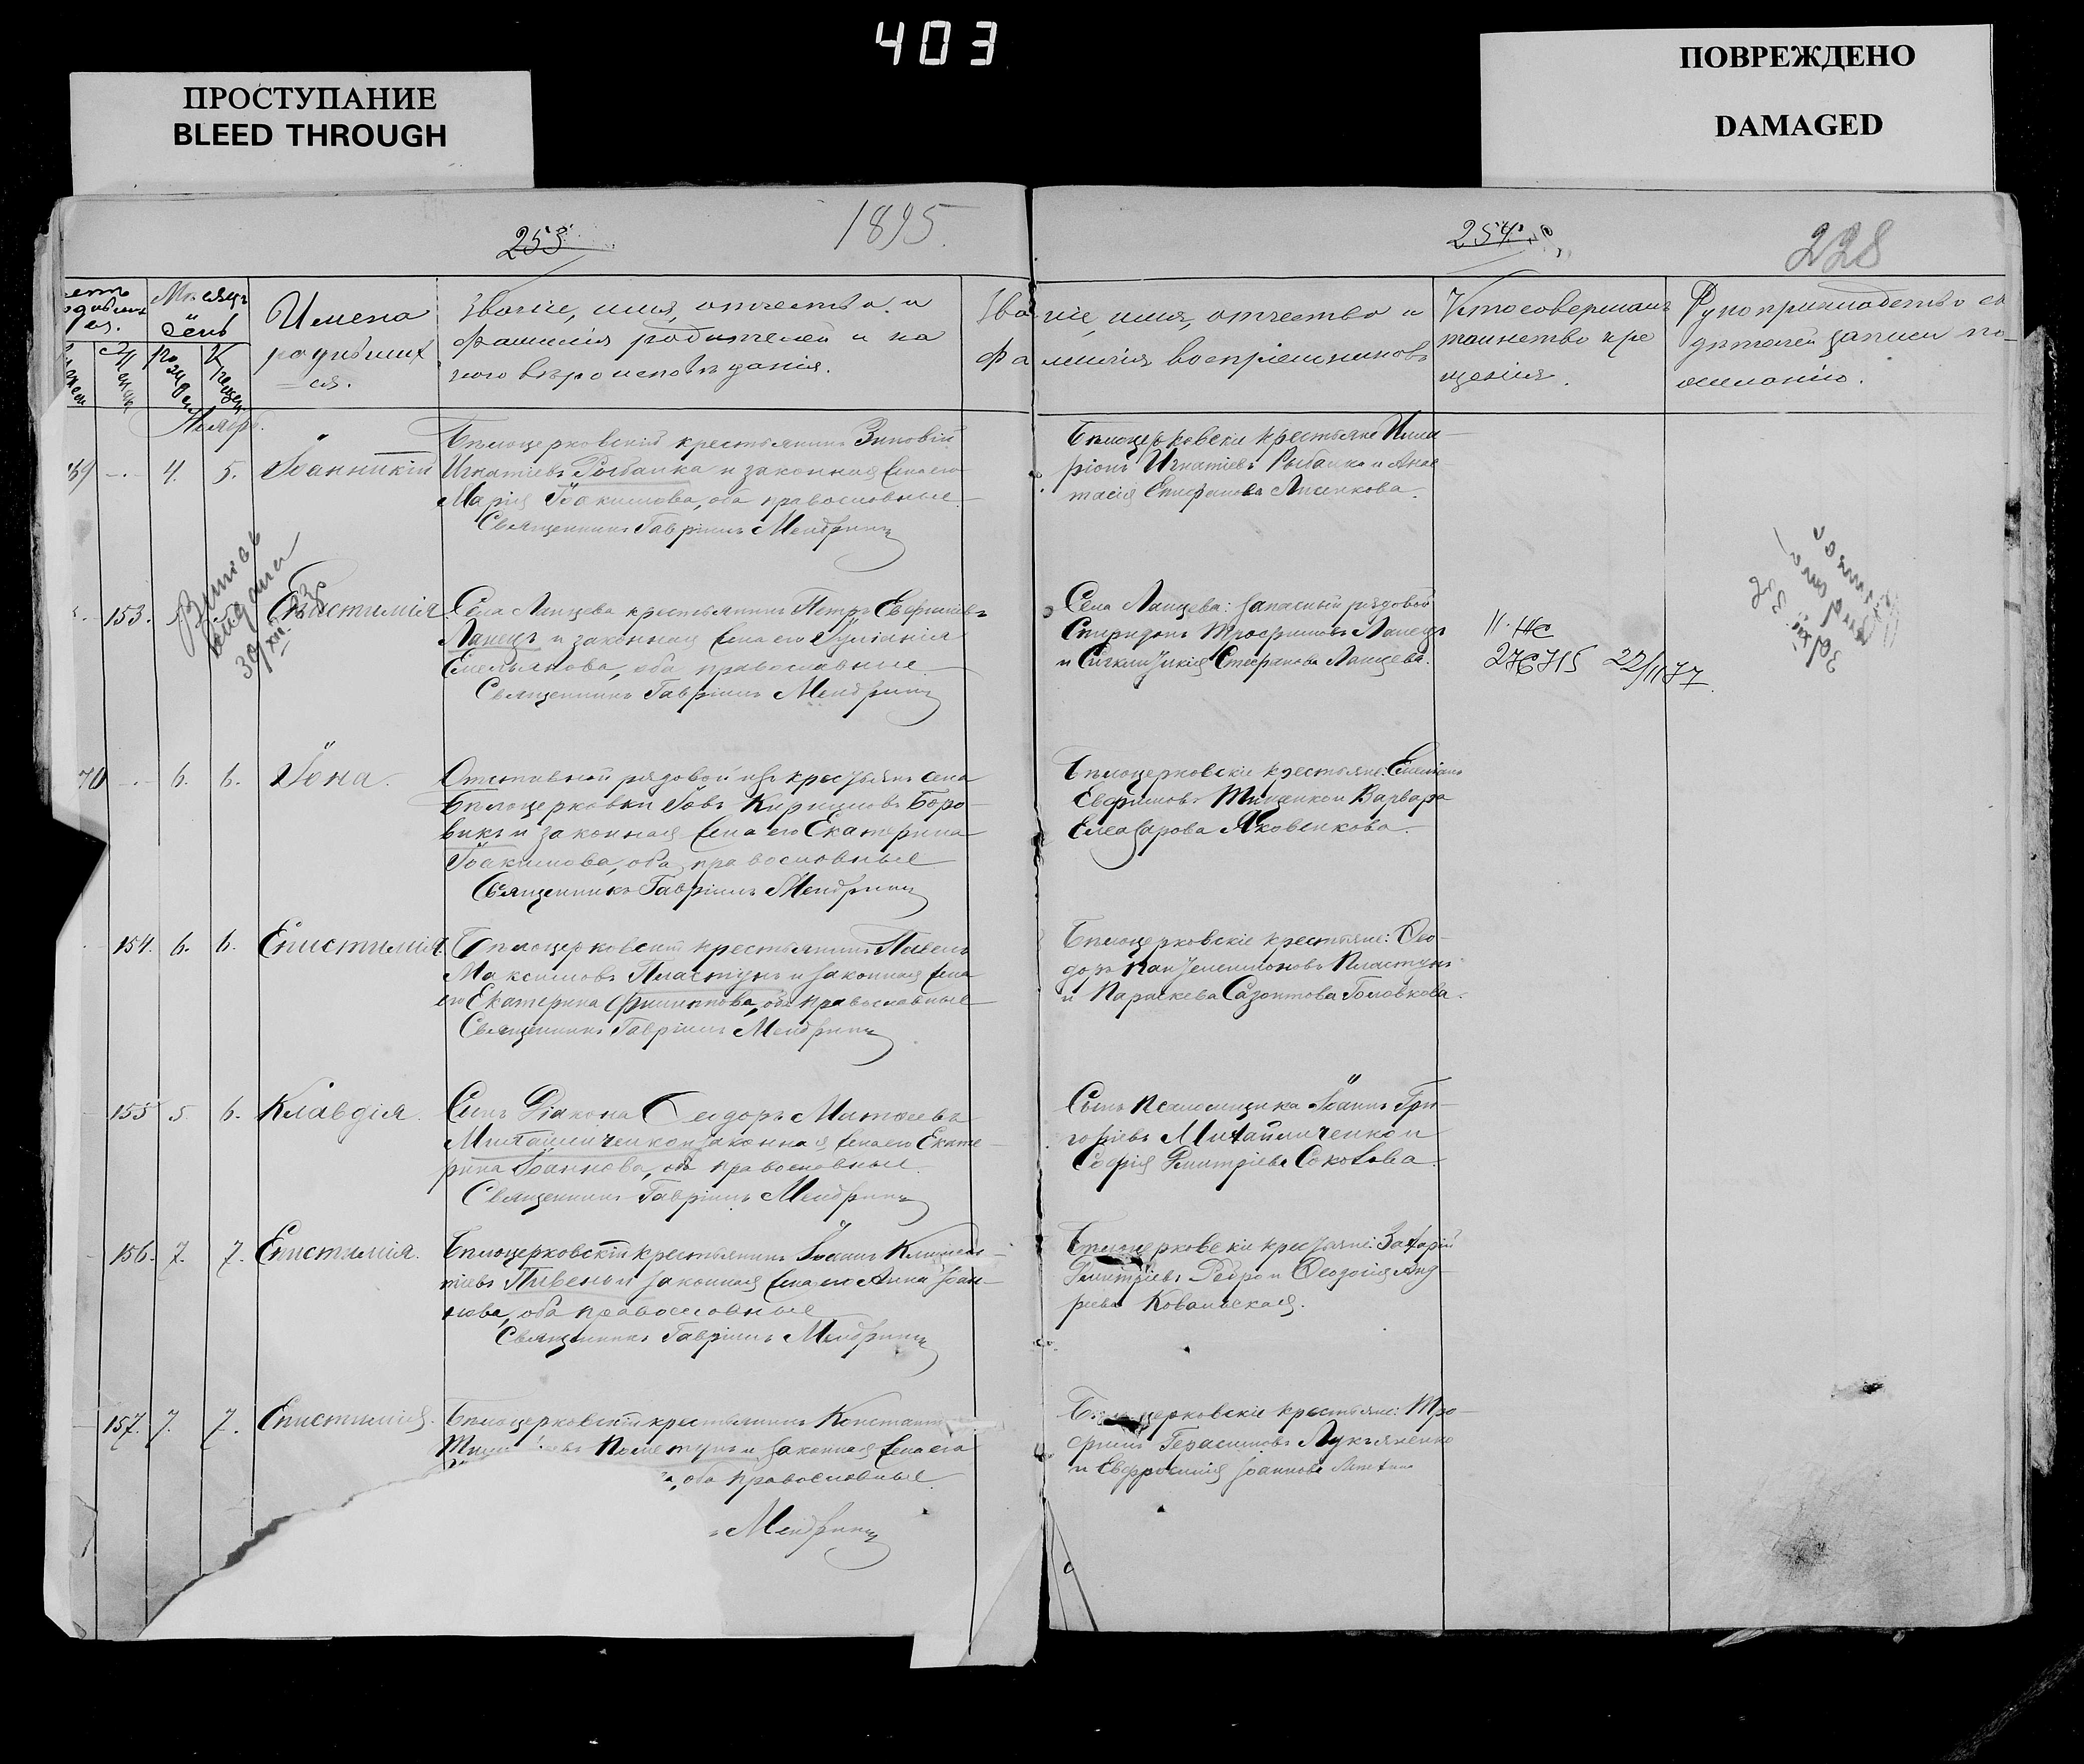 403
ПРОСТУПАНИЕ
BLEED THROUGH
ПОВРЕЖДЕНО
DAMAGED
253
1895.
254
228
Мѣсяцъ
день
Имена
родивших
=ся.
Званіе, имя, отчество и
фамилія родителей и ка
кого вѣроисповѣданія.
Званіе, имя, отчество и
фамилія воспріемниковъ
Кто совершалъ
таинство кре
щенія.
Рукоприкладство сви
дѣтелей записи по
желанію.
Ноябрь.
69 4. 5. Іоанникій
Бѣлоцерковскій крестьянинъ Зиновій
Игнатіевъ Рыбалка и законная жена его
Марія Іоакимова, оба православные
Священникъ Гавріилъ Мендринъ
Бѣлоцерковскіе крестьяне Илла-
ріонъ Игнатіевъ Рыбалка и Анас-
тасія Епифанова Лисенкова.
Выпись
выдана
30/XII
153. Епистимія
Села Ланцева крестьянинъ Петръ Евфиміевъ
Ланецъ и законная жена его Іуліанія
Емельянова, оба православные
Священникъ Гавріилъ Мендринъ
Села Ланцева: запасный рядовой
Спиридонъ Трофимовъ Ланецъ
и Стефанова Ланцева.
276715 22/II 77.
70 6. 6. Іона.
Отставной рядовой изъ крестьянъ села
Бѣлоцерковки Іовъ Кирилловъ Боро-
викъ и законная жена его Екатерина
Іоакимова, оба православные
Священникъ Гавріилъ Мендринъ
Бѣлоцерковскіе крестьяне: Емеліанъ
Евфимовъ Тищенко и Варвара
Елеазарова Яковенкова.
154. 6. 6. Епистимія
Бѣлоцерковскій крестьянинъ Павелъ
Максимовъ Пластунъ и законная жена
его Екатерина Филиппова, оба православные
Священникъ Гавріилъ Мендринъ
Бѣлоцерковскіе крестьяне: Ѳео-
доръ Пантелеимоновъ Пластунъ
и Параскева Созонтова Головкова.
155 5 6. Клавдія.
Сынъ Діакона Ѳеодоръ
Михайличенко и законная жена его Екате-
рина Іоаннова, оба православные.
Священникъ Гавріилъ Мендринъ
Сынъ Псаломщика Іоаннъ Гри-
горіевъ Михайличенко и
Софія Димитріева Соколова.
156. 7. 7. Епистимія.
Бѣлоцерковскій крестьянинъ Іоаннъ Климен-
тіевъ Пивень и законная жена его Анна Іоан-
нова, оба православные
Священникъ Гавріилъ Мендринъ
Бѣлоцерковскіе крестьяне: Захарій
Димитріевъ Ребро и Ѳеодосія Анд-
реева Ковальская.
157. 7. 7. Епистимія.
Бѣлоцерковскій крестьянинъ Константинъ
и законная жена его
оба православные.
Мендринъ
Бѣлоцерковскіе крестьяне: Тро-
фимъ Герасимовъ Лукьяненко
и Евфросинія Іоаннова